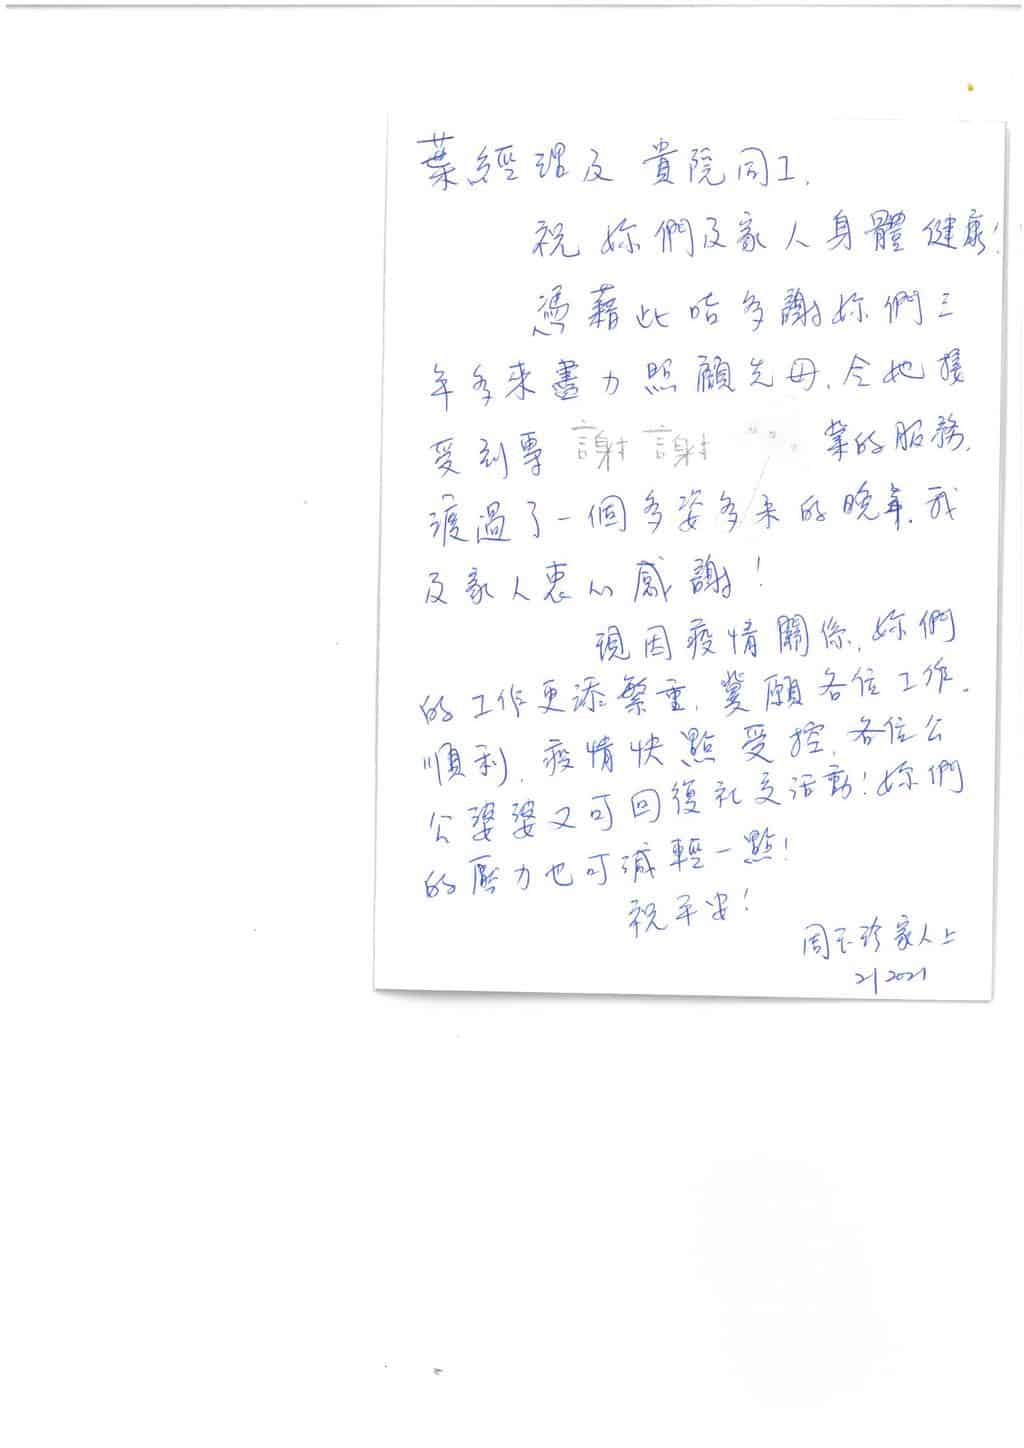 葉經理及 貴院同工,
祝 妳們及家人身體健康!
憑藉此咭多謝妳們三
年多來盡力照顧先母,令她接
受到專 謝謝 業的服務,
渡過了一個多姿多采的晚年,我
及家人衷心感謝!
現因疫情關係,妳們
的工作更添繁重,冀願各位工作
順利,疫情快點受控,各位公
公婆婆又可回復社交活動!妳們
的壓力也可減輕一點!
祝平安!
周玉珍家人上
2/2021